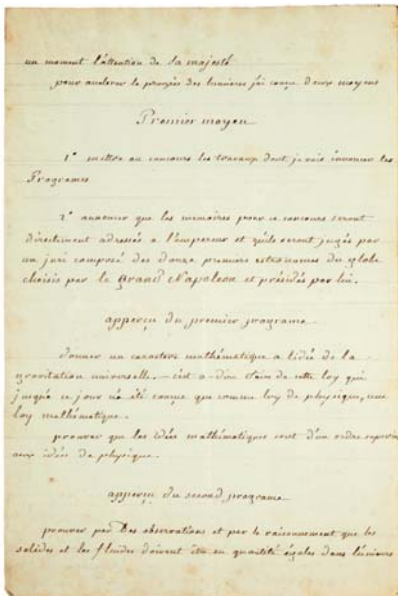 un moment l'attention de sa majesté
pour accelerer le progrès des lumieres j'ai conçu deux moyens
Premier moyen
1° mettre au concours les travaux dont je vais énoncer les
Programes
2° annoncer que les memoires pour ce concours seront
directement adressés a l'empereur et qu'ils seront jugés par
un juri composé des douze premiers astronomes du globe
choisis par le grand Napoleon et présidés par lui.
apperçu du premier programe
donner un caractere mathématique a l'idée de la
gravitation universelle. — c'est a dire faire de cette loy qui
jusqu'a ce jour n'a été conçue que comme loy de physique, une
loy mathématique.
prouver que les idées mathématiques sont d'un ordre superieur
aux idées de physique.
apperçu du second programe
prouver par des observations et par le raisonnement que les
solides et les fluides doivent être en quantité égales dans l'univers